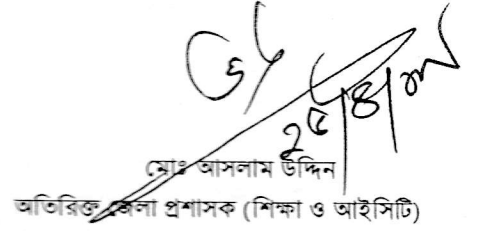 মোঃ আসলাম উদ্দিন
অতিরিক্ত জেলা প্রশাসক (শিক্ষা ও আইসিটি)